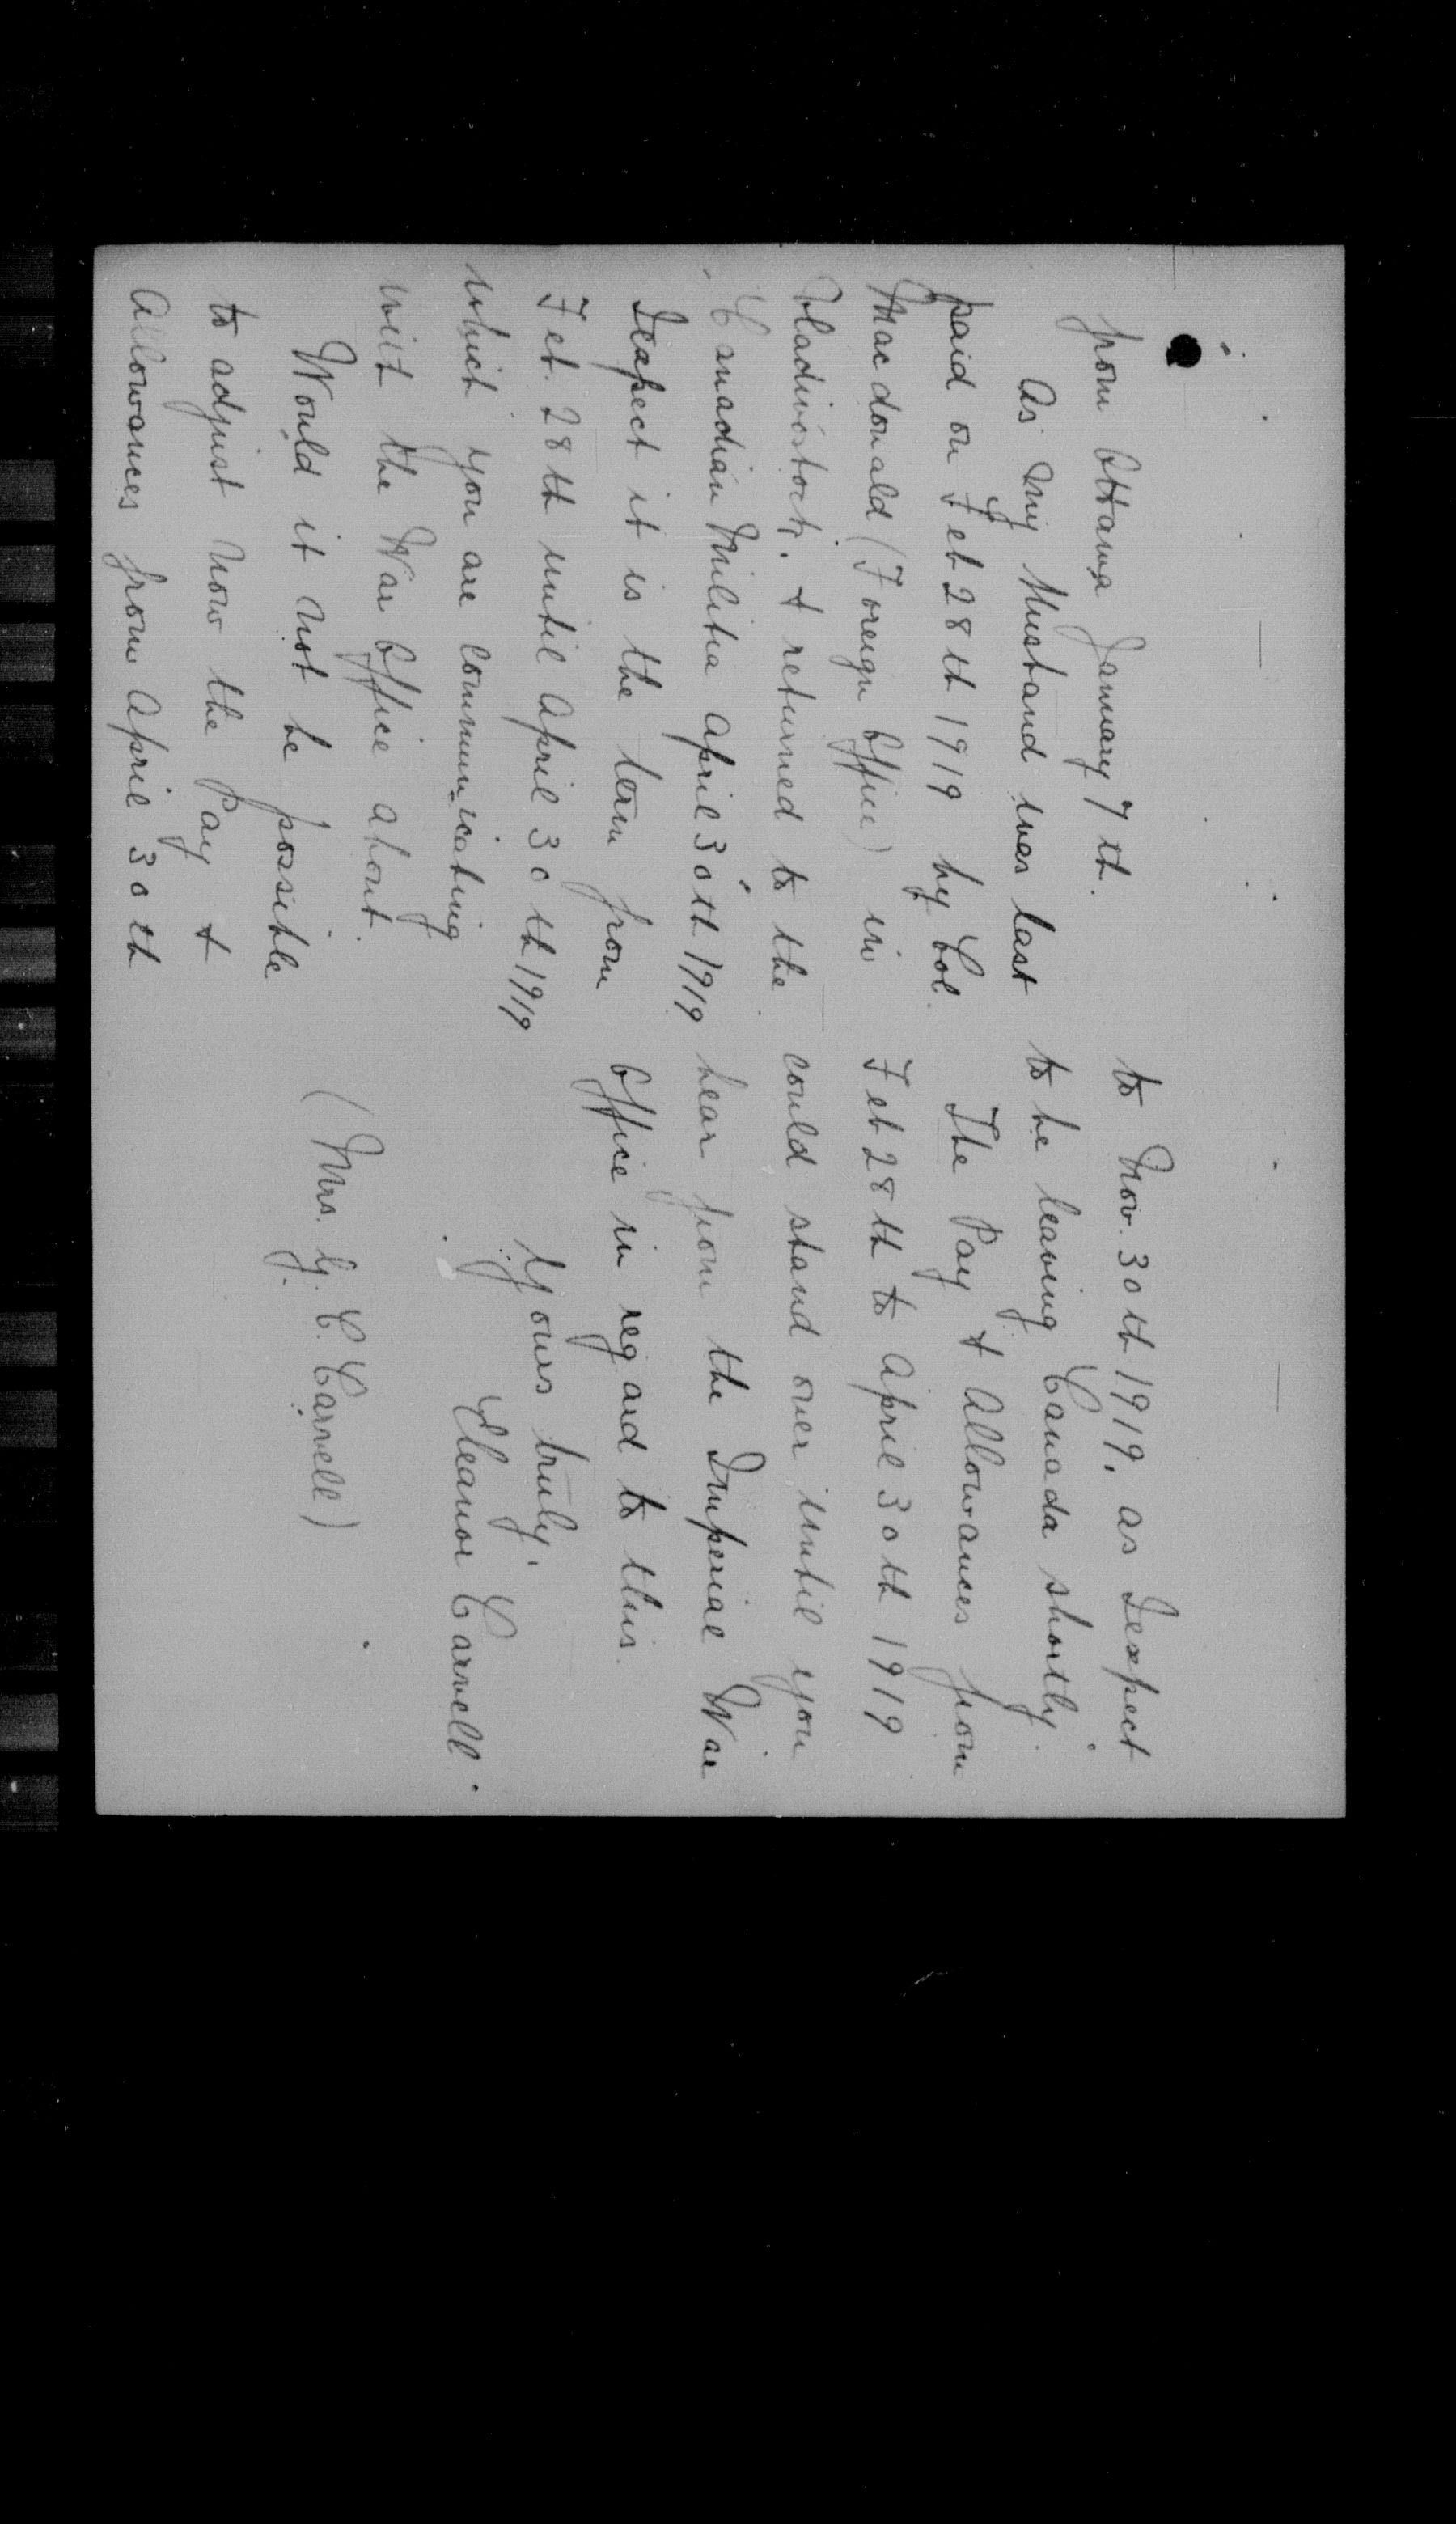 from Ottawa January 7th.
As my Husband was last
paid on Feb 28th 1919 by Col.
Macdonald (Foreign Office) in
Vladivostock, & returned to the
Canadian Militia April 30th 1919
I expect it is the term from
Feb. 28th until April 30th 1919
which you are communicating
wit the War Office about.
Would it not be possible
to adjust now the Pay &
Allowances from April 30th
to Nov. 30th 1919, as I expect
to be leaving Canada shortly.
The Pay & Allowances from
Feb 28th to April 30th 1919
could stand over until you
hear from the Imperial War
Office in regard to this.
Yours truly,
Eleanor Carvell.
(Mrs. G. C. Carvell)